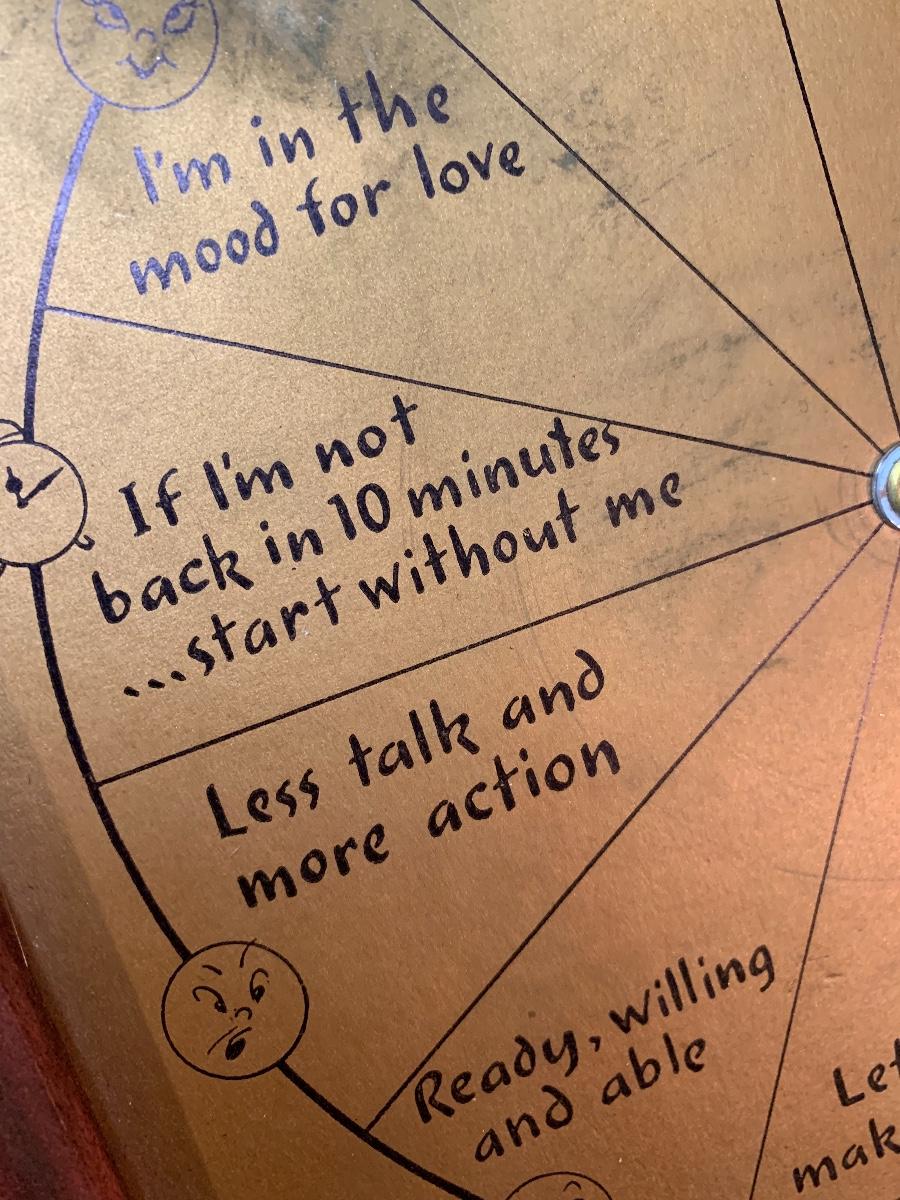 I'm in the
mood for love
If I'm not
back in 10 minutes
...start without me
Less talk and
more action
Ready, willing
and able